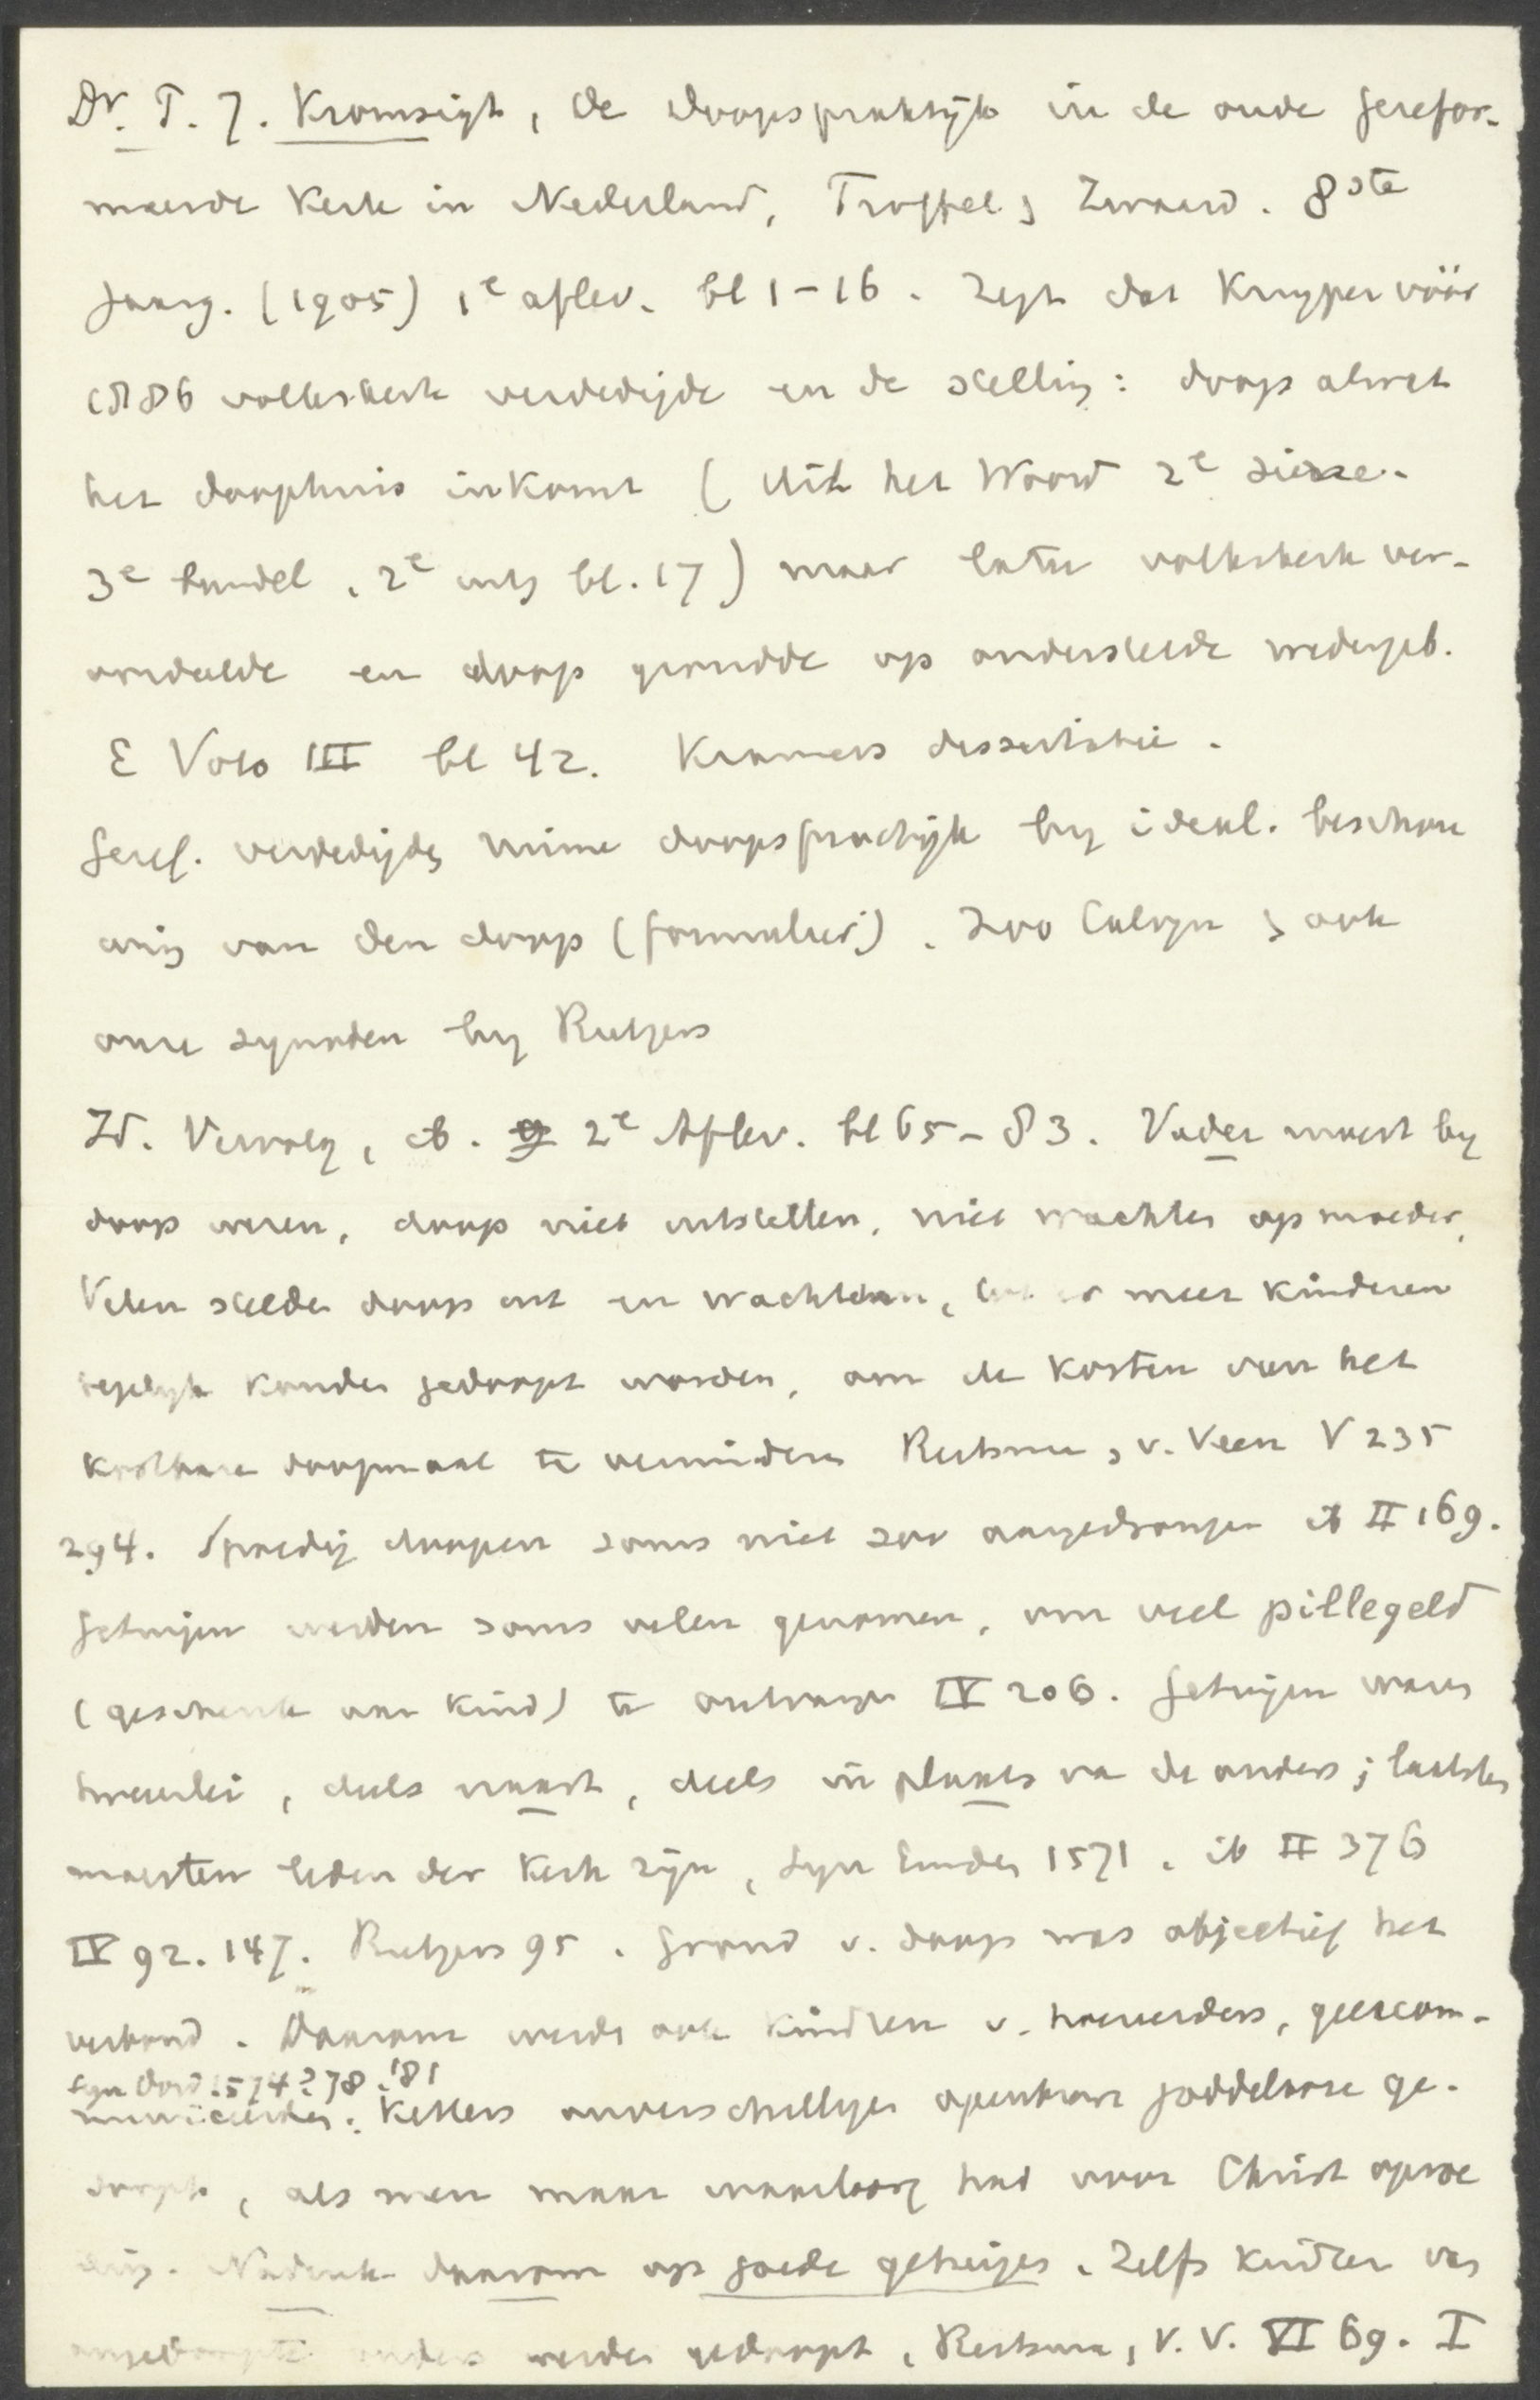 Dr. P. J. Kromsigt, De Doopspraktijk in de oude Gerefor-
meerde Kerk in Nederland, Troffel & Zwaard. 8ste
Jaarg. (1905) 1e aflev. bl 1-16. Zegt dat Kuyper vóór
1886 volkskerk verdedigde en de stelling: doop al wat
het doophuis inkomt (Uit het Woord 2e Serie.
3e bundel, 2e uitg bl. 17) maar later volkskerk ver-
oordeelde en doop grondde op onderstelde wedergeb.
E Voto III bl 42. Kramers dissertatie.
Geref. verdedigden ruime doopspractijk by ideal. beschou
wing van den doop (formulier). Zoo Calvyn & ook
onze synoden by Rutgers
Id. Vervolg, ib. 2e Aflev. bl 65-83. Vader moest by
doop wezen, doop niet uitstellen, niet wachten op moeder,
Velen stelden doop uit en wachtten, tot er meer kinderen
tegelyk konden gedoopt worden, om de kosten van het
kostbare doopmaal te verminderen Reitsma & v. Veen V 235
294. Spoedig doopen soms niet zoo aangedrongen ib II 169.
Getuigen werden soms velen genomen, om veel pillegeld
(geschenk aan kind) te ontvangen IV 206. Getuigen waren
tweeërlei, deels naast, deels in plaats van de ouders; laatsten
moesten leden der kerk zijn, Syn Emden 1571. ib II 376
IV 92. 147. Rutgers 95. Grond v. doop was objectief het
verbond. Daarom werden ook kinderen v. hoereerders, geëxcom-
Syn Dord. 1574? 78. '81
municeerden. Ketters onverschilligen openbare goddelooze ge-
doopt, als men maar waarborg had voor Christ opvoe
ding. Nadruk daarom op goede getuigen. Zelfs kinderen van
ongedoopte ouders werden gedoopt, Reitsma, v. V. VI 69. I